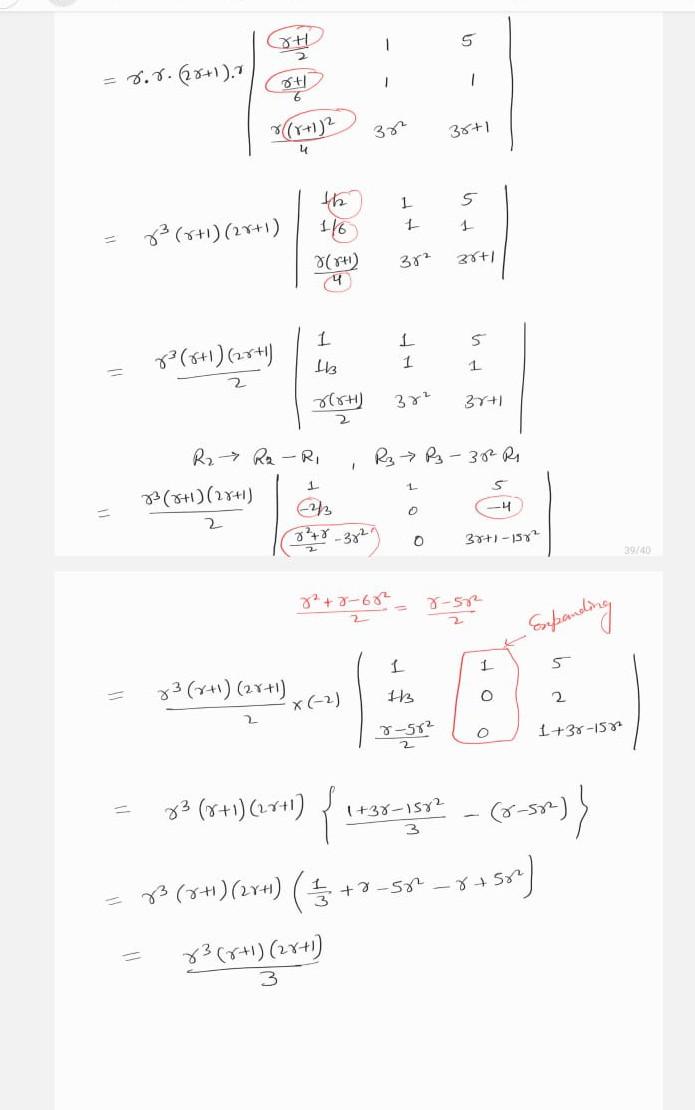 = r.r.(2r+1).r | (r+1)/2 1 5 |
| (r+1)/6 1 1 |
| r(r+1)²/4 3r² 3r+1 |
= r³(r+1)(2r+1) | 1/2 1 5 |
| 1/6 1 1 |
| r(r+1)/4 3r² 3r+1 |
= r³(r+1)(2r+1)/2 | 1 1 5 |
| 1/3 1 1 |
| r(r+1)/2 3r² 3r+1 |
R₂ → R₂ – R₁ , R₃ → R₃ – 3r² R₁
= r³(r+1)(2r+1)/2 | 1 1 5 |
| –2/3 0 –4 |
| (r²+r)/2 – 3r² 0 3r+1–15r² |
39/40
(r²+r–6r²)/2 = (r–5r²)/2
Expanding
= r³(r+1)(2r+1)/2 × (–2) | 1 1 5 |
| 1/3 0 2 |
| (r–5r²)/2 0 1+3r–15r² |
= r³(r+1)(2r+1) { (1+3r–15r²)/3 – (r–5r²) }
= r³(r+1)(2r+1) ( 1/3 + r – 5r² – r + 5r² ]
= r³(r+1)(2r+1)/3